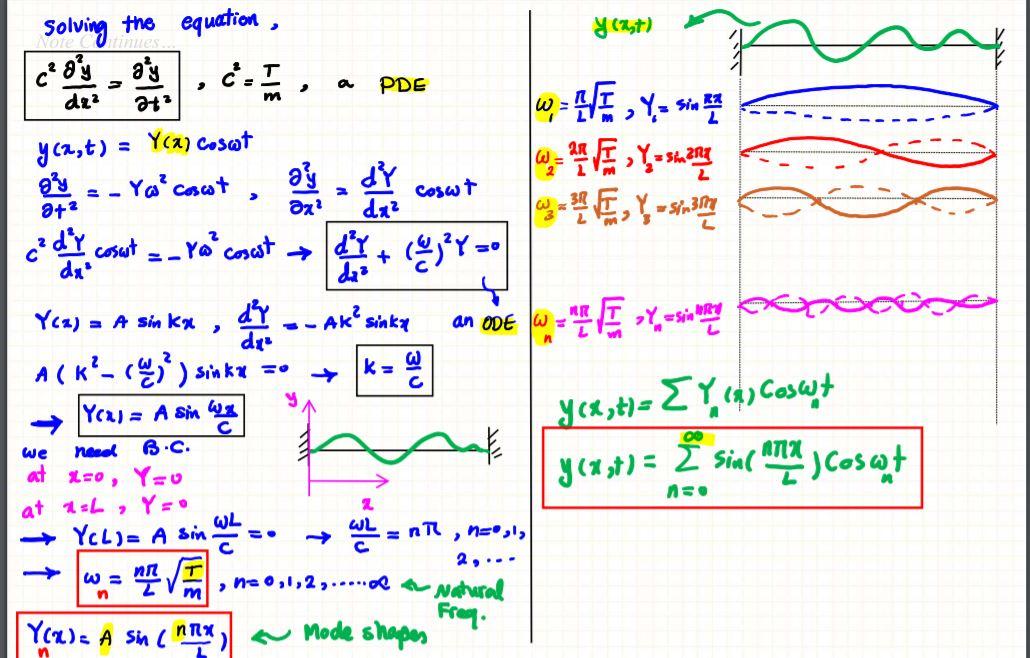 Solving the equation,
Note Continues...
c² ∂²y/dx² = ∂²y/∂t² , c² = T/m , a PDE
y(x,t) = Y(x) cosωt
∂²y/∂t² = - Yω² cosωt , ∂²y/∂x² = d²Y/dx² cosωt
c² d²Y/dx² cosωt = - Yω² cosωt → d²Y/dx² + (ω/c)² Y = 0
Y(x) = A sin kx , d²Y/dx² = - AK² sinkx an ODE
A ( K² - (ω/c)² ) sinkx = 0 → k = ω/c
→ Y(x) = A sin ωx/c
we need B.C.
at x=0, Y=0
at x=L, Y=0
y
x
→ Y(L) = A sin ωL/c = 0 → ωL/c = nπ , n=0,1,
2, ....
→ ωn = nπ/L √T/m , n= 0,1,2, .....∞ ← Natural
Freq.
Yn(x) = A sin ( nπx/L ) ← Mode shapes
y(x,t)
ω1 = π/L √T/m , Y1 = sin πx/L
ω2 = 2π/L √T/m , Y2 = sin 2πx/L
ω3 = 3π/L √T/m , Y3 = sin 3πx/L
ωn = nπ/L √T/m , Yn = sin nπx/L
y(x,t) = ∑ Yn(x) Cosωnt
y(x,t) = ∞∑n=0 sin( nπx/L ) Cosωnt